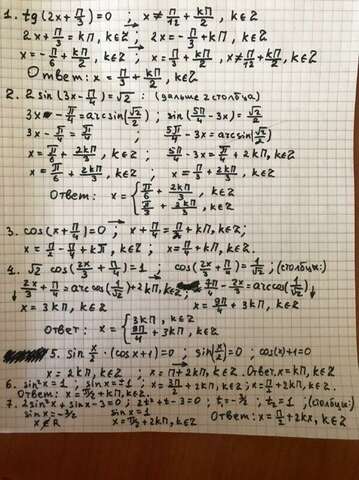 1. tg(2x+π/3)=0 ; x≠π/12+kπ/2, k∈Z
2x+π/3=kπ, k∈Z ; 2x=-π/3+kπ, k∈Z
x=-π/6+kπ/2, k∈Z ; x=π/3+kπ/2, x≠π/12+kπ/2, k∈Z
Ответ: x=π/3+kπ/2, k∈Z
2. 2sin(3x-π/4)=√2 ; (дальше 2 столбца)
3x-π/4=arcsin(√2/2) ; sin(5π/4-3x)=√2/2
3x-π/4=π/4 ; 5π/4-3x=arcsin(√2/2)
x=π/6+2kπ/3, k∈Z ; 5π/4-3x=π/4+2kπ, k∈Z
x=π/6+2kπ/3, k∈Z ; x=π/3+2kπ/3, k∈Z
Ответ: x={π/6+2kπ/3, k∈Z
π/3+2kπ/3, k∈Z
3. cos(x+π/4)=0 ; x+π/4=π/2+kπ, k∈Z;
x=π/2-π/4+kπ, k∈Z; x=π/4+kπ, k∈Z.
4. √2 cos(2x/3+π/4)=1 ; cos(2x/3+π/4)=1/√2 ; (столбцы:)
2x/3+π/4=arccos(1/√2)+2kπ, k∈Z
x=3kπ, k∈Z ; x=9π/4+3kπ, k∈Z
Ответ: x={3kπ, k∈Z
9π/4+3kπ, k∈Z
5. sin x/2 · (cosx+1)=0 ; sin(x/2)=0 ; cos(x)+1=0
x=2kπ, k∈Z ; x=π+2kπ, k∈Z. Ответ: x=kπ, k∈Z
6. sin²x=1 ; sinx=±1 ; x=3π/2+2kπ, k∈Z; x=π/2+2kπ, k∈Z.
Ответ: x=π/2+kπ, k∈Z.
7. 2sin²x+sinx-3=0 ; 2t²+t-3=0 ; t₁=-3/2 ; t₂=1 ; (столбцы:)
sinx=-3/2 sinx=1 Ответ: x=π/2+2kπ, k∈Z
x∉R x=π/2+2kπ, k∈Z